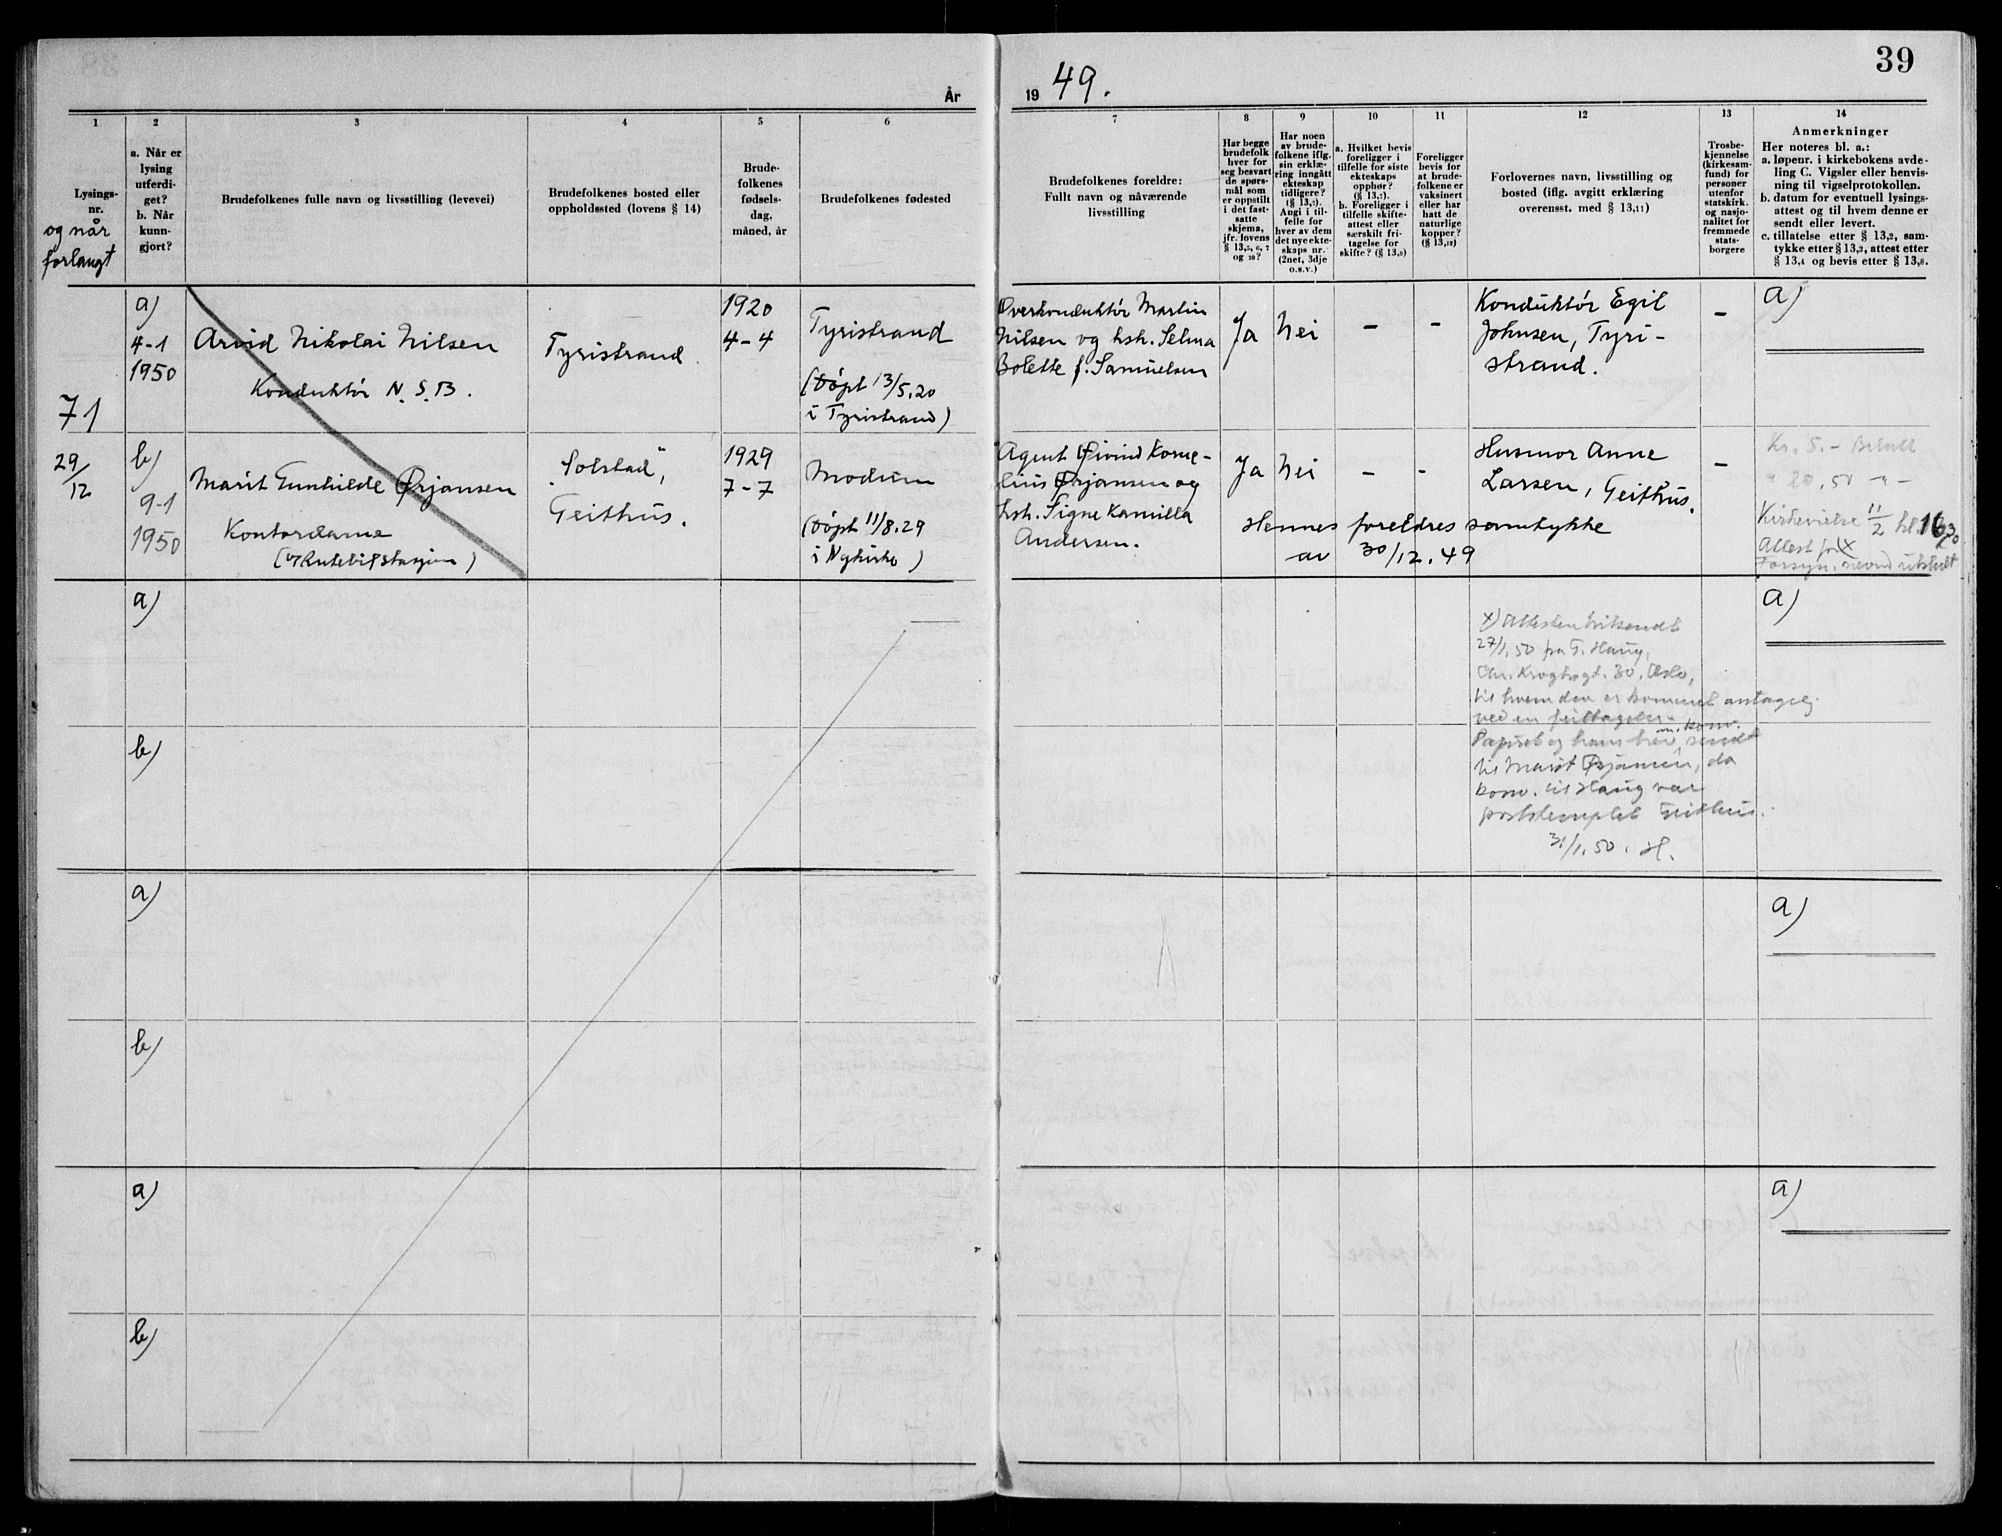 39
År 19 49.
1
Lysings-
nr.
og når
forlangt
2
a. Når er
lysing
utferdi-
get?
b. Når
kunn-
gjort?
3
Brudefolkenes fulle navn og livsstilling (levevei)
4
Brudefolkenes bosted eller
oppholdssted (lovens § 14)
5
Brude-
folkenes
fødsels-
dag,
måned, år
6
Brudefolkenes fødested
7
Brudefolkenes foreldre:
Fullt navn og nåværende
livsstilling
8
Har begge
brudefolk
hver for
seg besvart
de spørs-
mål som
er oppstilt
i det fast-
satte
skjema,
jfr. lovens
§ 13,5, 6, 7
og 10?
9
Har noen
av brude-
folkene iflg.
sin erklæ-
ring inngått
ekteskap
tidligere?
(§ 13,7).
Angi i til-
felle for
hver av dem
det nye ekte-
skaps nr.
(2net, 3dje
o.s.v.)
10
a. Hvilket bevis
foreligger i
tilfelle for siste
ekteskaps
opphør?
(§ 13,7).
b. Foreligger i
tilfelle skifte-
attest eller
særskilt fri-
tagelse for
skifte? (§ 13,8)
11
Foreligger
bevis for
at brude-
folkene er
vaksinert
eller har
hatt de
naturlige
kopper?
(§ 13,12)
12
Forlovernes navn, livsstilling og
bosted (iflg. avgitt erklæring
overensst. med § 13,11)
13
Trosbe-
kjennelse
(kirkesam-
fund) for
personer
utenfor
statskirk.
og nasjo-
nalitet for
fremmede
stats-
borgere
14
Anmerkninger
Her noteres bl. a.:
a. løpenr. i kirkebokens avde-
ling C. Vigsler eller henvis-
ning til vigselprotokollen.
b. datum for eventuell lysings-
attest og til hvem denne er
sendt eller levert.
c. tillatelse etter § 13,2, sam-
tykke etter § 13,3, attest etter
§ 13,4 og bevis etter § 13,8.
71
29/12
a)
4-1
1950
Arvid Nikolai Nilsen
Konduktör N.S.B.
Tyristrand.
1920
4-4
Tyristrand
(døpt 13/5.20
i Tyristrand)
Overkonduktör Martin
Nilsen og hsh. Selma
Bolette f. Samuelsen
Ja
Nei
-
-
Konduktör Egil
Johnsen, Tyri-
strand.
-
a)
b)
9-1
1950
Marit Gunhilde Ørjansen
Kontordame
(v/Rutebilstasjon)
"Solstad",
Geithus.
1929
7-7
Modum
(døpt 11/8.29
i Nykirke)
Agent Øivind Korne-
lius Ørjansen og
hsh. Signe Kamilla
Andersen.
Ja
Nei
-
-
Husmor Anne
Larsen, Geithus.
-
Hennes foreldres samtykke
av 30/12.49
Kr. 5.- Betalt
" 20,50 -"-
Kirkevielse 11/2 kl. 16 30
Attest fra x)
Forsyn. nevnd utstedt
a)
a)
x) Attesten tilsendt
27/1.50 fra T. Haug,
Chr. Kroghsgt. 30, Oslo,
til hvem den er kommet antagelig
ved en feiltagelse.
Papiret og hans brev m. konv. sendt
til Marit Ørjansen, da
konv. til Haug var
poststemplet Geithus.
31/1.50. H.
b)
a)
a)
b)
a)
a)
b)